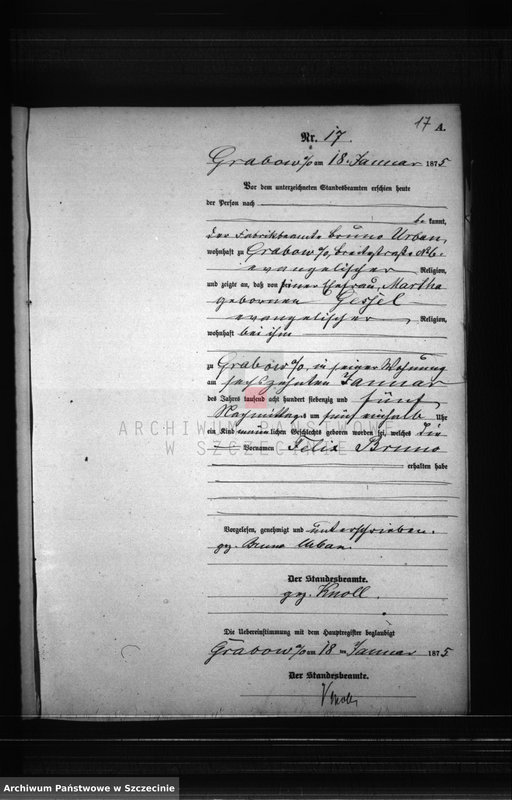 17 A.
Nr. 17.
Grabow a/O am 18. Januar 1875
Vor dem unterzeichneten Standesbeamten erschien heute
der Person nach
be kannt,
der Fabrikbeamte Bruno Urban,
wohnhaft zu Grabow a/O, Breitestraße
evangelischer Religion,
und zeigte an, daß von seiner Ehefrau, Martha
gebornen Gessel
evangelischer Religion,
wohnhaft bei ihm
zu Grabow a/O, in seiner Wohnung
am sechszehnten Januar
des Jahres tausend acht hundert siebenzig und fünf
Nachmittags um fünf einhalb Uhr
ein Kind männlichen Geschlechts geboren worden sei, welches die
Vornamen Felix Bruno
erhalten habe
ARCHIWUM PAŃSTWOWE
W SZCZECINIE
Vorgelesen, genehmigt und unterschrieben.
gez. Bruno Urban.
Der Standesbeamte.
gez. Knoll.
Die Uebereinstimmung mit dem Hauptregister beglaubigt
Grabow a/O am 18 ten Januar 1875
Der Standesbeamte.
Knoll
Archiwum Państwowe w Szczecinie